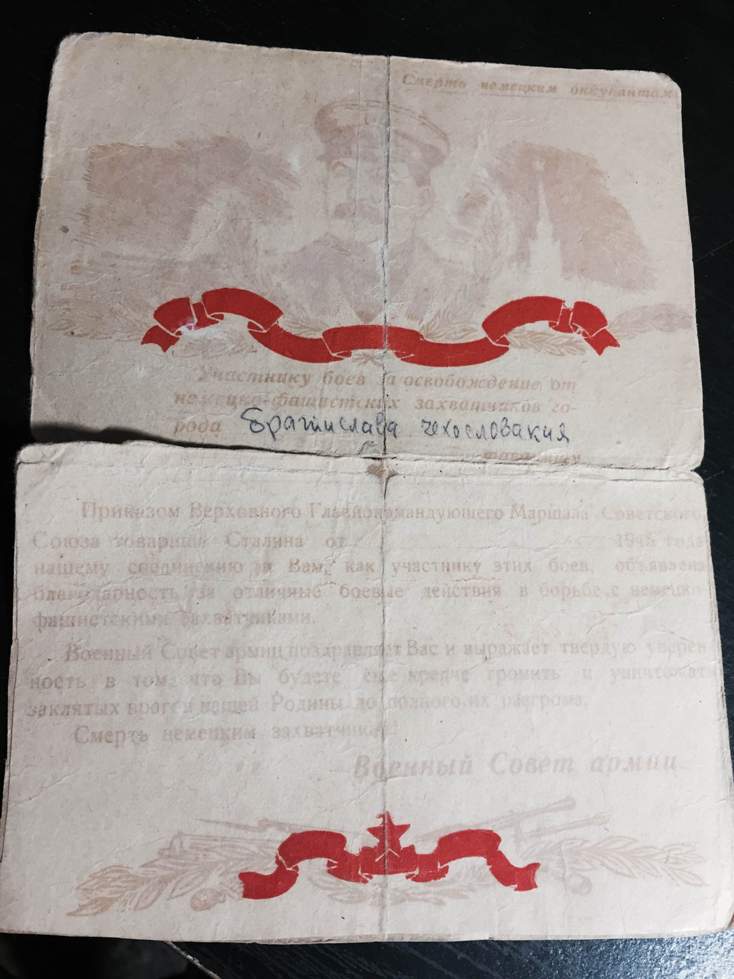 Смерть немецким оккупантам
Участнику боев за освобождение от
немецко-фашистских захватчиков го-
рода Братислава чехословакия
Приказом Верховного Главнокомандующего Маршала Советского
Союза товарища Сталина от 1945 года
нашему соединению и Вам, как участнику этих боев, объявлена
благодарность за отличные боевые действия в борьбе с немецко-
фашистскими захватчиками.
Военный Совет армии поздравляет Вас и выражает твердую уверен-
ность в том, что Вы будете еще крепче громить и уничтожать
заклятых врагов нашей Родины до полного их разгрома.
Смерть немецким захватчикам!
Военный Совет армии